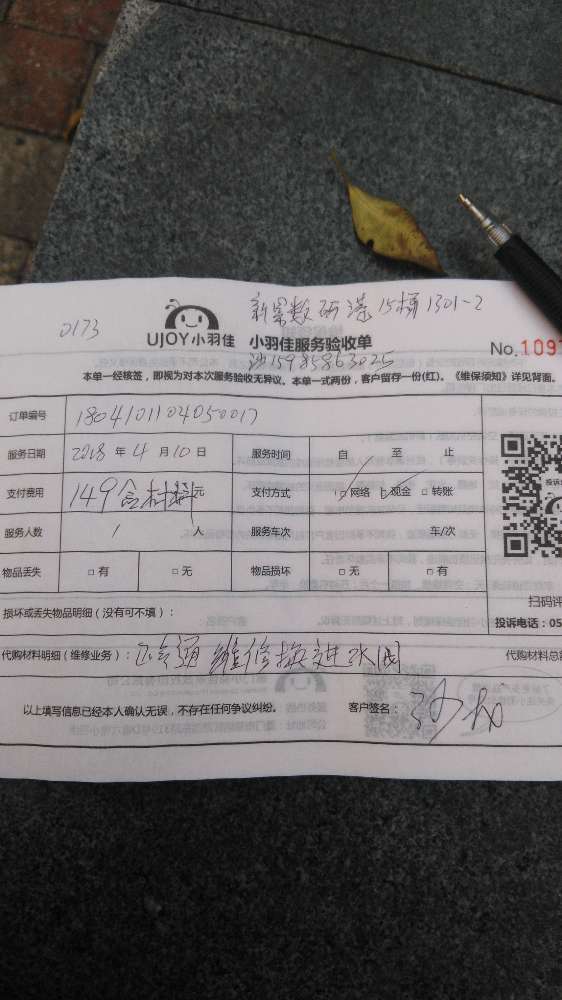 新景数码港15栋1301-2
0173
UJOY小羽佳 小羽佳服务验收单
No.109
沙15985863025
本单一经核签，即视为对本次服务验收无异议。本单一式两份，客户留存一份(红)。《维保须知》详见背面。
订单编号 1804101104050017
服务日期 2018 年 4 月 10 日 服务时间 自 至 止
支付费用 149含材料元 支付方式 □网络 □现金 □转账
服务人数 1 人 服务车次 车/次
投诉
物品丢失 □有 □无 物品损坏 □无 □有
扫码评
损坏或丢失物品明细（没有可不填）：
投诉电话：05
代购材料明细（维修业务）： 维修换进水阀 代购材料总
以上填写信息已经本人确认无误，不存在任何争议纠纷。 客户签名：